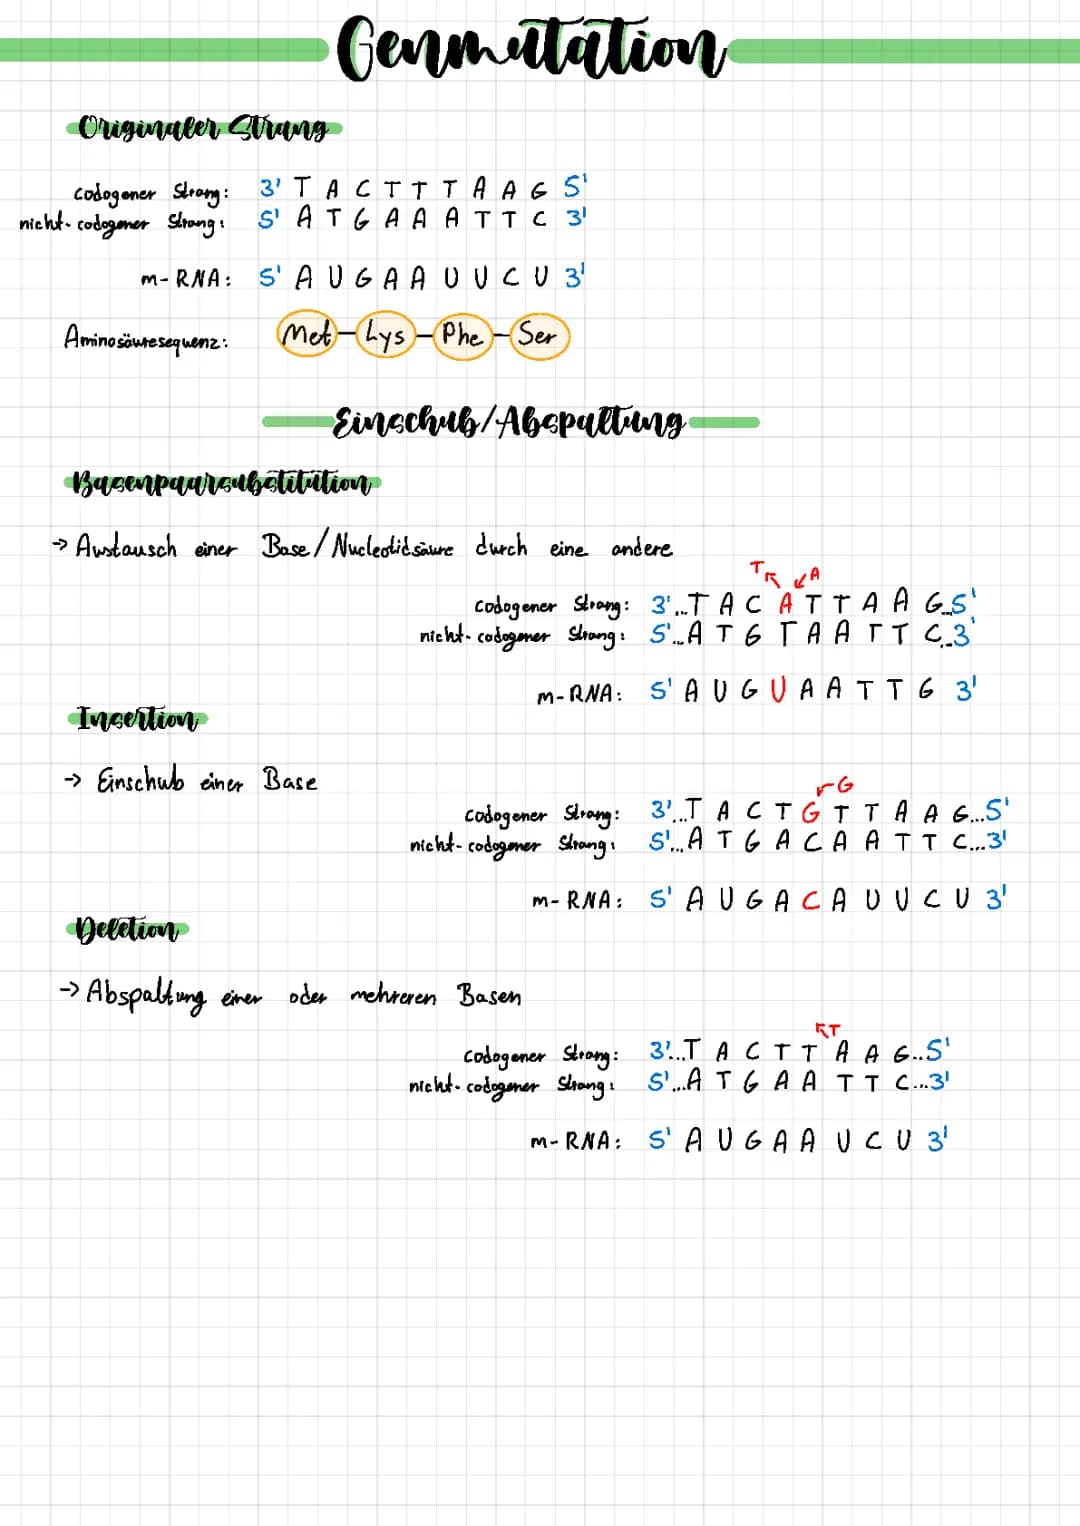 Genmutation
Originaler Strang
codogener Strang: 3' T A C T T T A A G 5'
nicht-codogener Strang: 5' A T G A A A T T C 3'
m-RNA: 5' A U G A A U U C U 3'
Aminosäuresequenz: Met-Lys-Phe-Ser
Einschub/Abspaltung
Basenpaarsubstitution
→ Austausch einer Base/Nucleotidsäure durch eine andere
T A
codogener Strang: 3'...T A C A T T A A G...5'
nicht-codogener Strang: 5'...A T G T A A T T C...3'
m-RNA: 5' A U G U A A T T G 3'
Insertion
→ Einschub einer Base
G
codogener Strang: 3'...T A C T G T T A A G...5'
nicht-codogener Strang: 5'...A T G A C A A T T C...3'
m-RNA: 5' A U G A C A U U C U 3'
Deletion
→ Abspaltung einer oder mehreren Basen
T
codogener Strang: 3'...T A C T T A A G...5'
nicht-codogener Strang: 5'...A T G A A T T C...3'
m-RNA: 5' A U G A A U C U 3'